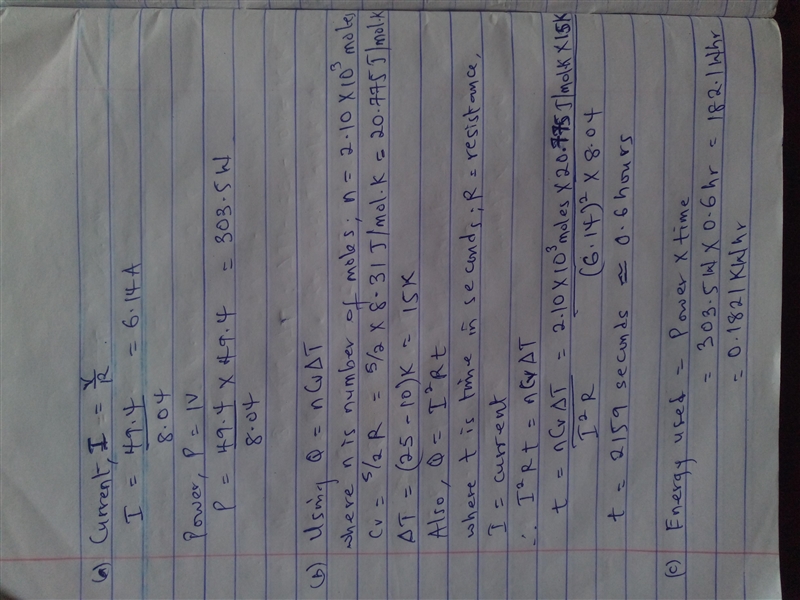 (a) Current, I = V/R.
I = 49.4/8.04 = 6.14A
Power, P = IV
P = 49.4 × 49.4/8.04 = 303.5W
(b) Using Q = nCvΔT
where n is number of moles; n = 2.10 × 10³ moles
Cv = 5/2 R = 5/2 × 8.31 J/mol.K = 20.775 J/mol.K
ΔT = (25 - 10)K = 15K
Also, Q = I²Rt
where t is time in seconds; R = resistance,
I = current
∴ I²Rt = nCvΔT
t = nCvΔT/I²R = 2.10 × 10³ moles × 20.775 J/mol.K × 15K/(6.14)² × 8.04
t = 2159 seconds ≃ 0.6 hours
(c) Energy used = Power × time
= 303.5W × 0.6hr = 182.1Whr
= 0.1821KWhr